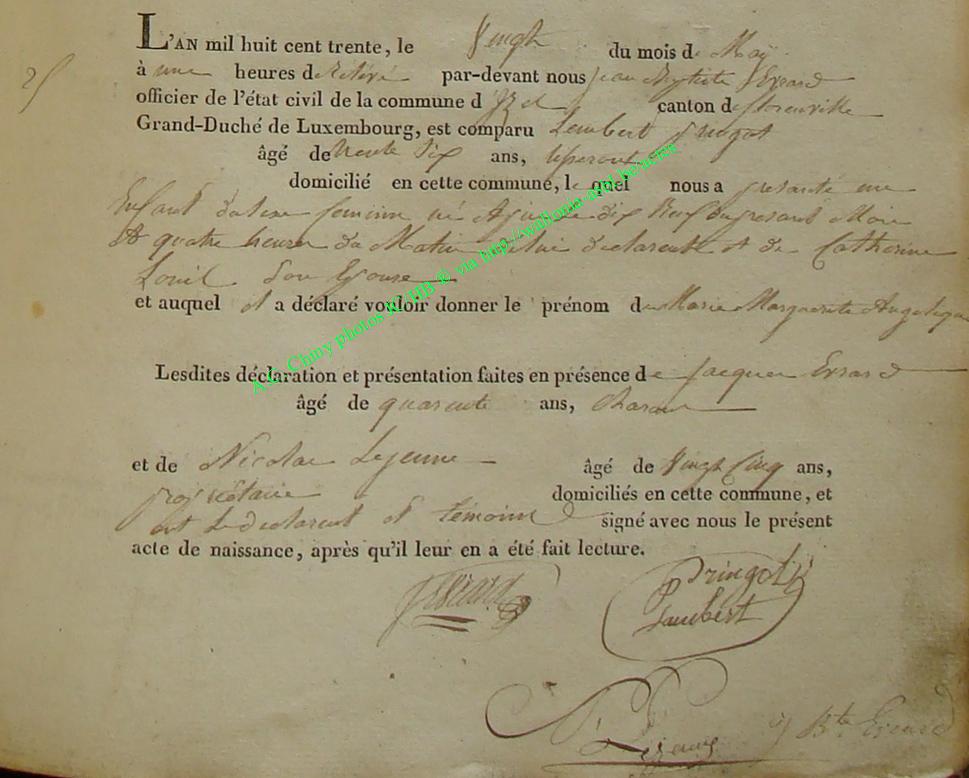 25
L'AN mil huit cent trente, le Vingt du mois de Maÿ
à une heures de relevé par-devant nous jean Baptiste Errard
officier de l'état civil de la commune d'Izel canton de florenville
Grand-Duché de Luxembourg, est comparu Lambert pringot
âgé de trente Six ans,
domicilié en cette commune, le quel nous a présenté un
Enfant du sexe feminin né dix Neuf du présent Mois
A quatre heures du Matin de lui declarant et de Catherine
Louil Son Epouse
et auquel il a déclaré vouloir donner le prénom de Marie Marguerite Angelique
Lesdites déclaration et présentation faites en présence de Jacques Errard
âgé de quarante ans, Charon
et de Nicolas Lejeune âgé de Vingt Cinq ans,
proprietaire domiciliés en cette commune, et
ont Le declarant et temoins signé avec nous le présent
acte de naissance, après qu'il leur en a été fait lecture.
J Errard
Pringot
Lambert
N Lejeune
j Bte Errard
A.E. Chiny photos K HB © via http://wallonia-asbl.be/actes